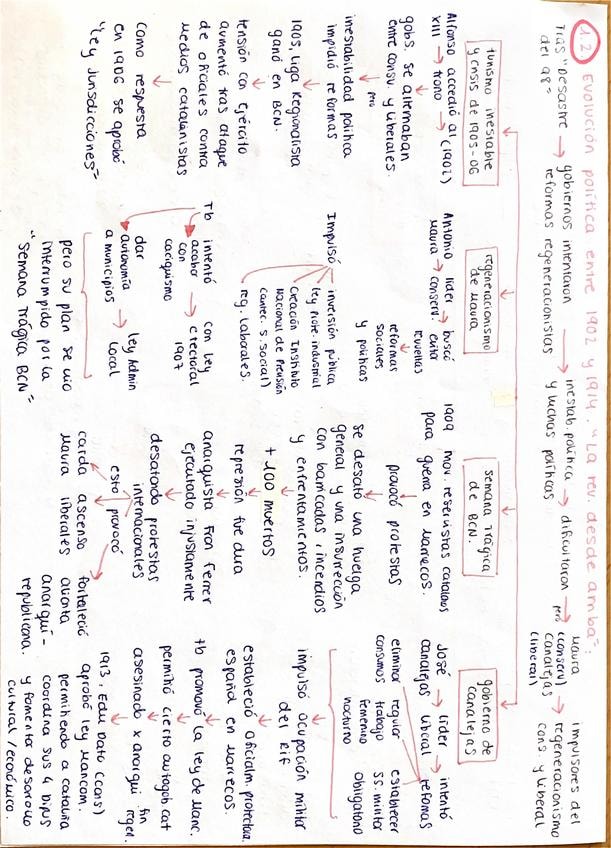 1.2 Evolución política entre 1902 y 1914. "La rev. desde arriba":
Tras "desastre → gobiernos intentaron → inestab. política → dificultaron → Maura → impulsores del
del 98" reformas regeneracionistas y luchas políticas pero (conserv) regeneracionismo
Canalejas cons. y liberal
(liberal)
turnismo inestable
y crisis de 1905-06
Alfonso accedió al
XIII → trono → (1902)
gobs. se alternaban
entre consv. y liberales
pero
inestabilidad política
impidió reformas
1905, Liga Regionalista
ganó en BCN.
tensión con Ejército
aumentó tras ataque
de oficiales contra
medios catalanistas
como respuesta
en 1906 se aprobó
"Ley Jurisdicciones"
regeneracionismo
de Maura
Antonio líder → buscó
Maura → conserv. evitar
revueltas
reformas
sociales
y políticas
Impulsó
inversión pública
ley Prote. industrial
Creación Instituto
Nacional de Previsión
(antec. s. social)
reg. laborales.
Tb intentó
acabar → con ley
con electoral
caciquismo 1907
dar
autonomía → ley Admin
a municipios local
pero su plan se vio
interrumpido por la
"Semana Trágica BCN"
Semana Trágica
de BCN.
1909 mov. reservistas catalanes
para guerra en Marruecos.
provocó protestas
se desató una huelga
general y una insurrección
con barricadas, incendios
y enfrentamientos.
+ 100 muertos
represión fue dura
anarquista Fran Ferrer
ejecutado injustamente
desatando protestas
internacionales
esto provocó
caída ascenso fortaleció
Maura liberales alianza
anarqui-
republicana.
gobierno de
Canalejas
José → líder → intentó
Canalejas liberal reformas
eliminar regular establecer
consumos trabajo SS. militar
femenino obligatorio
nocturno
impulsó ocupación militar
del Rif
estableció oficialm. protectora.
español en Marruecos.
tb promovió la ley de Manc.
permitió cierto autogob cat
asesinado x anarqui. fin
regen.
1913, Edu Dato (cons)
aprobó ley Mancom.
permitiendo a Cataluña
coordinar sus 4 dipus
y fomentar desarrollo
cultural/económico.